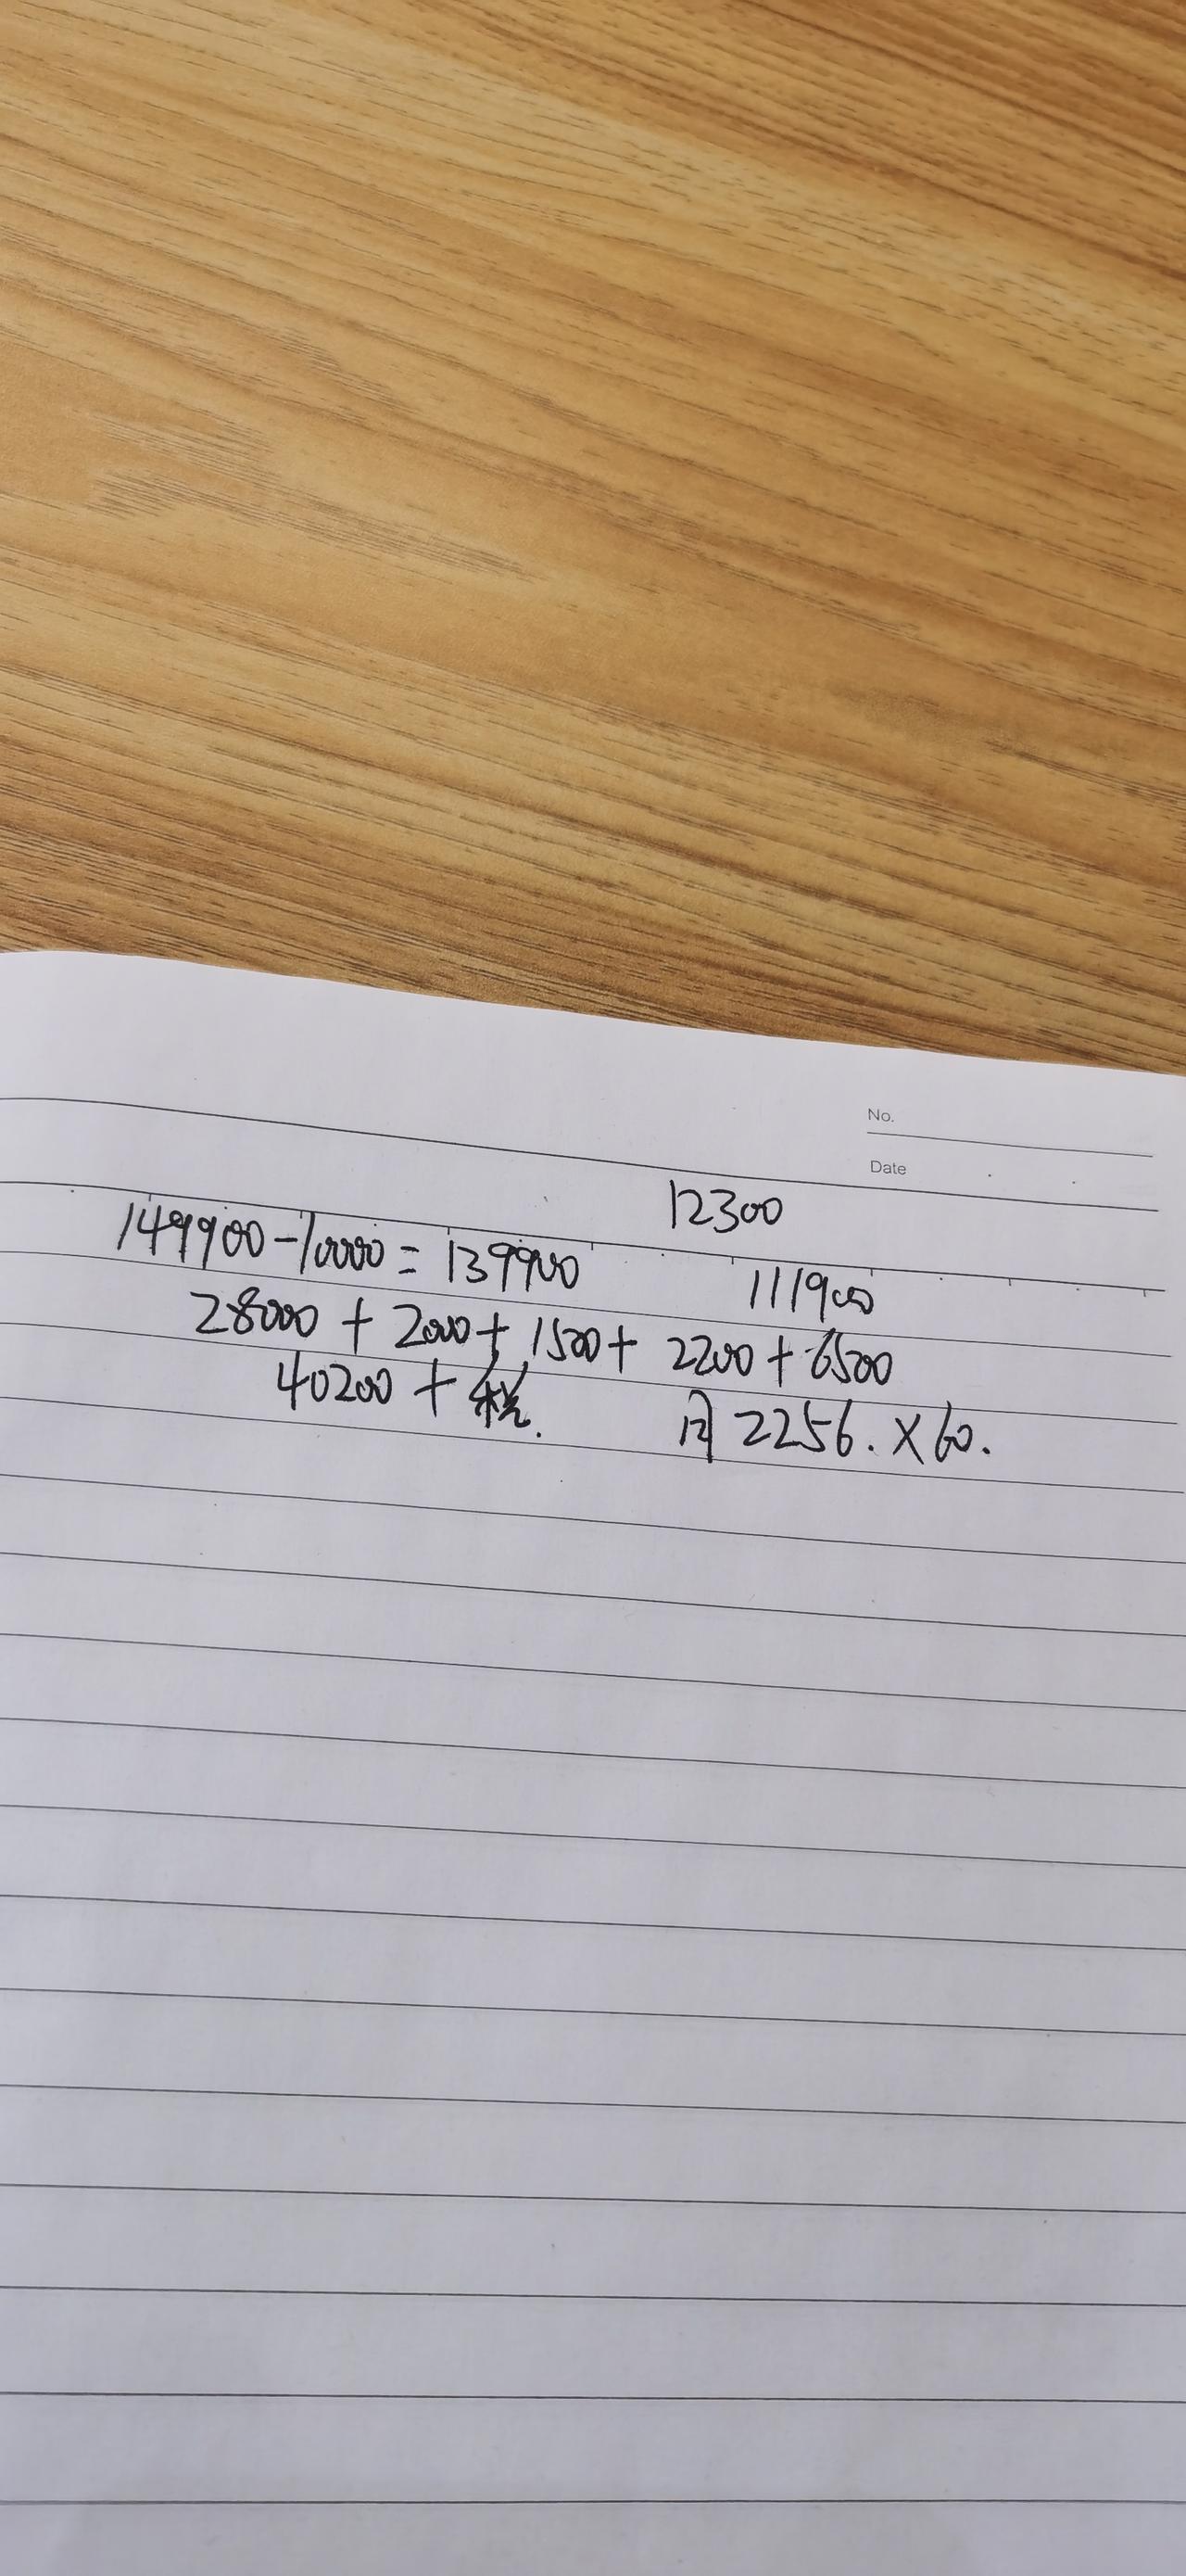 No.
Date
12300
149900-10000=139900
111900
28000+2000+1500+2200+6500
40200+税.
月2256.×60.